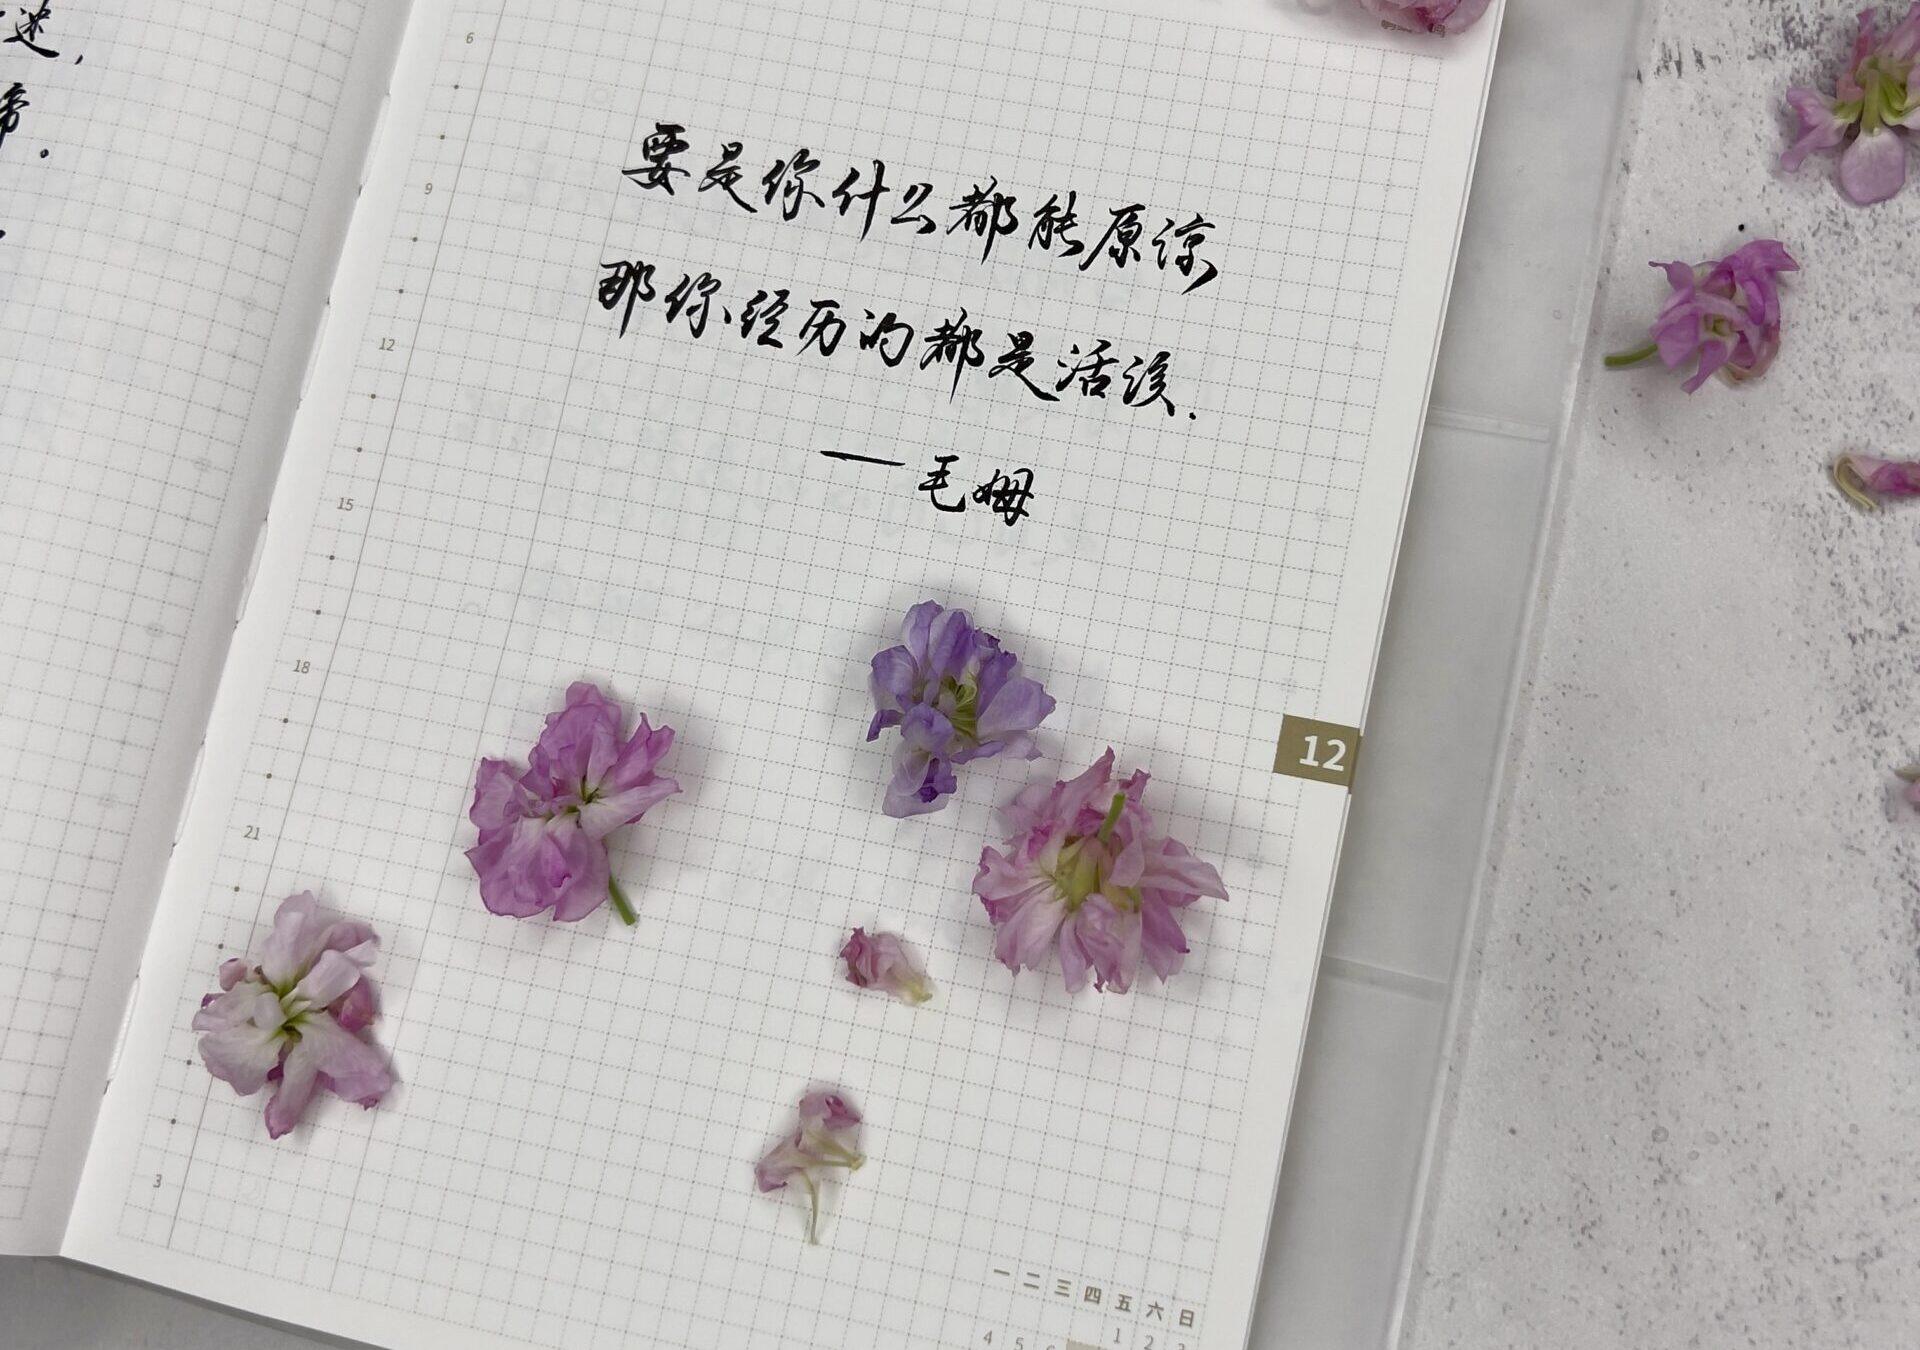 迷，
帝。
6
9
12
15
18
21
3
要是你什么都能原谅
那你经历的都是活该.
——毛姆
12
一 二 三 四 五 六 日
1 2 3
4 5 6